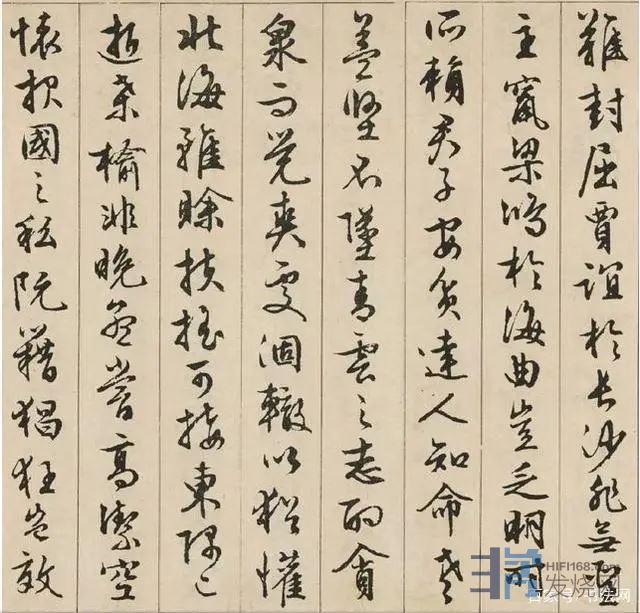 難封屈賈誼於長沙非無聖
主竄梁鴻於海曲豈乏明時
所賴君子安貧達人知命老
益堅不墜青雲之志酌貪
泉而覺爽處涸轍以猶懽
北海雖賒扶搖可接東隅已
逝桑榆非晚孟嘗高潔空
懷报國之私阮籍猖狂豈效
HIFI168.com
发烧网